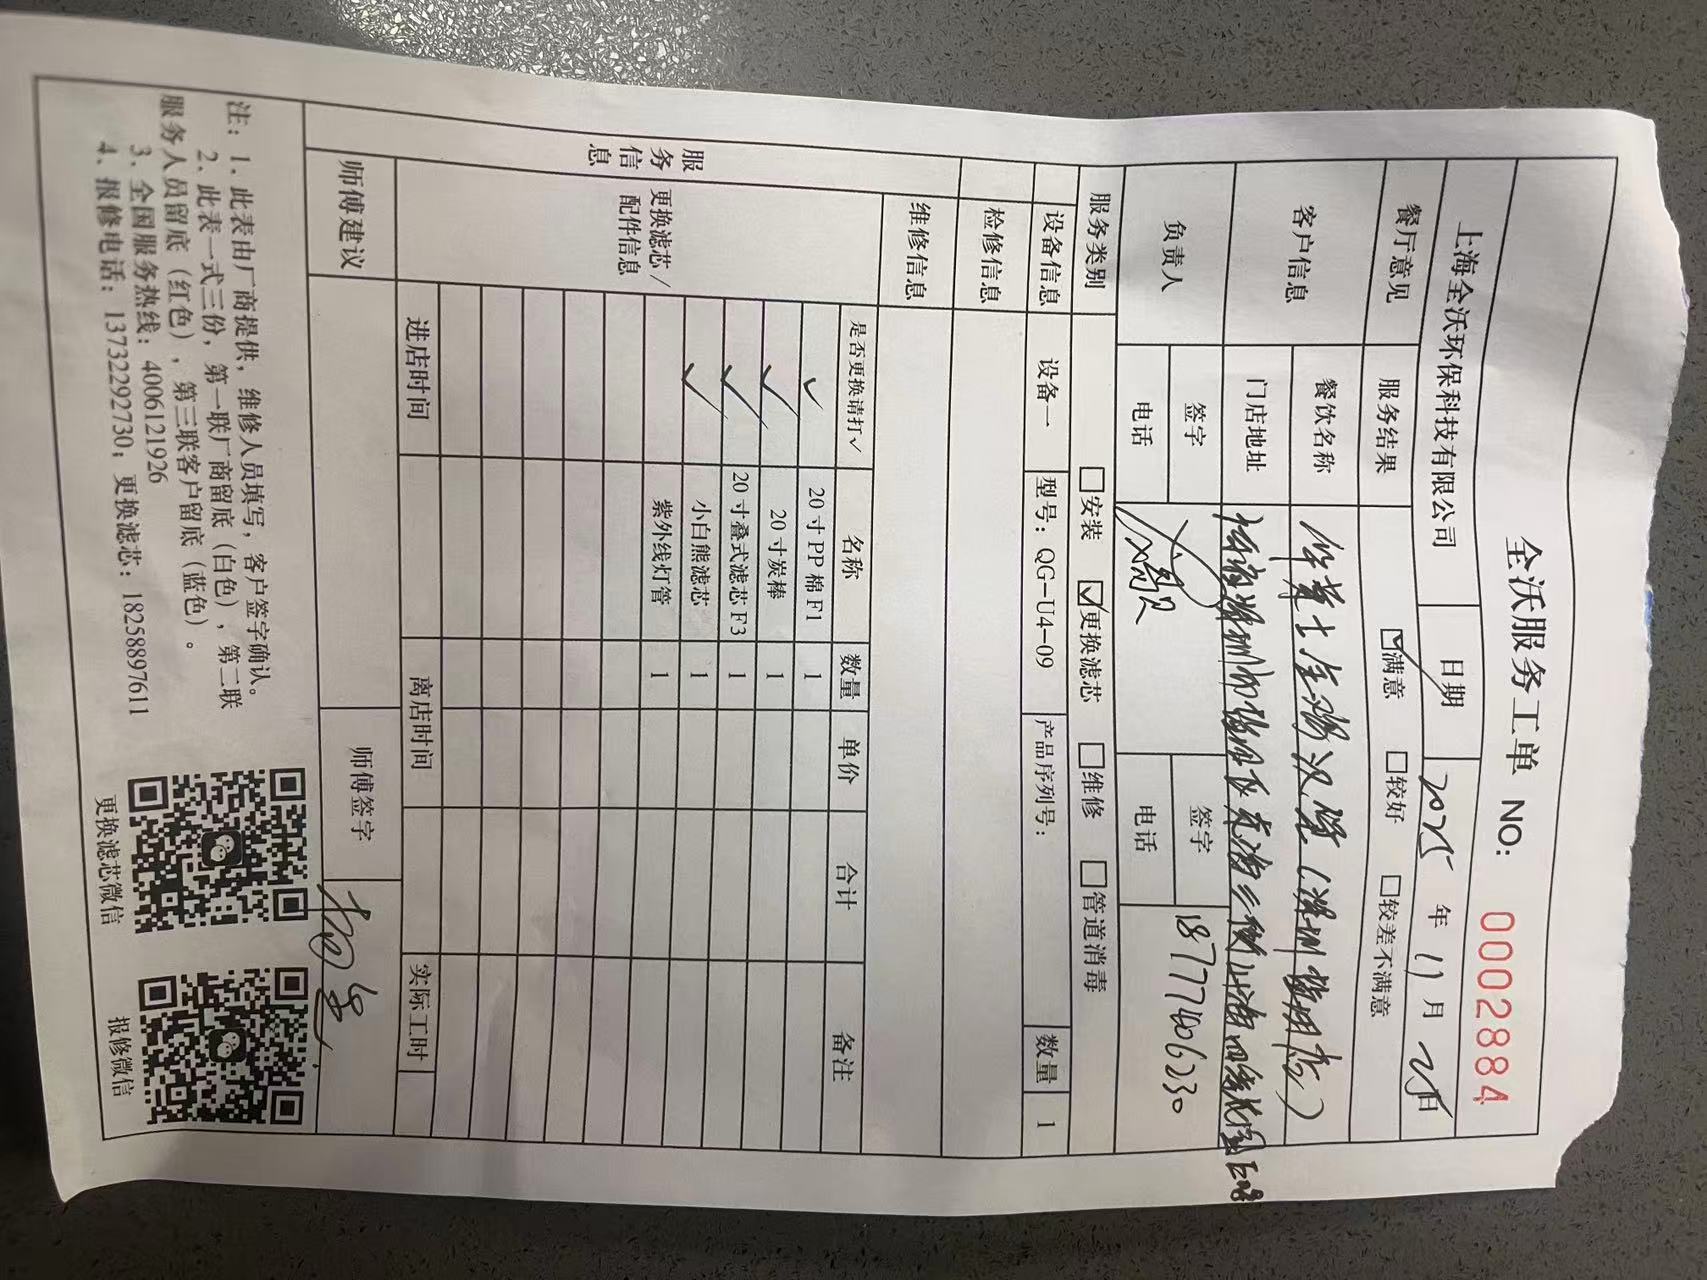 全沃服务工单 NO: 0002884
上海全沃环保科技有限公司 日期 2025 年 11 月 日
餐厅意见 服务结果 ☑满意 □较好 □较差不满意
客户信息 餐饮名称 华莱士全鸡汉堡(
门店地址
负责人 签字 签字 187774006230
电话 电话
服务类别 □安装 ☑更换滤芯 □维修 □管道消毒
设备信息 设备一 型号: QG-U4-09 产品序列号: 数量 1
检修信息
维修信息
服务信息
更换滤芯/配件信息
是否更换请打✓ 名称 数量 单价 合计 备注
✓ 20寸PP棉F1 1
✓ 20寸炭棒 1
✓ 20寸叠式滤芯F3 1
✓ 小白熊滤芯 1
紫外线灯管 1
进店时间 离店时间 实际工时
师傅建议 师傅签字
注: 1、此表由厂商提供, 维修人员填写, 客户签字确认。
2、此表一式三份, 第一联厂商留底(白色), 第二联
服务人员留底(红色), 第三联客户留底(蓝色)。
3、全国服务热线: 4006121926
4、报修电话: 13732292730; 更换滤芯: 18258897611
更换滤芯微信 报修微信